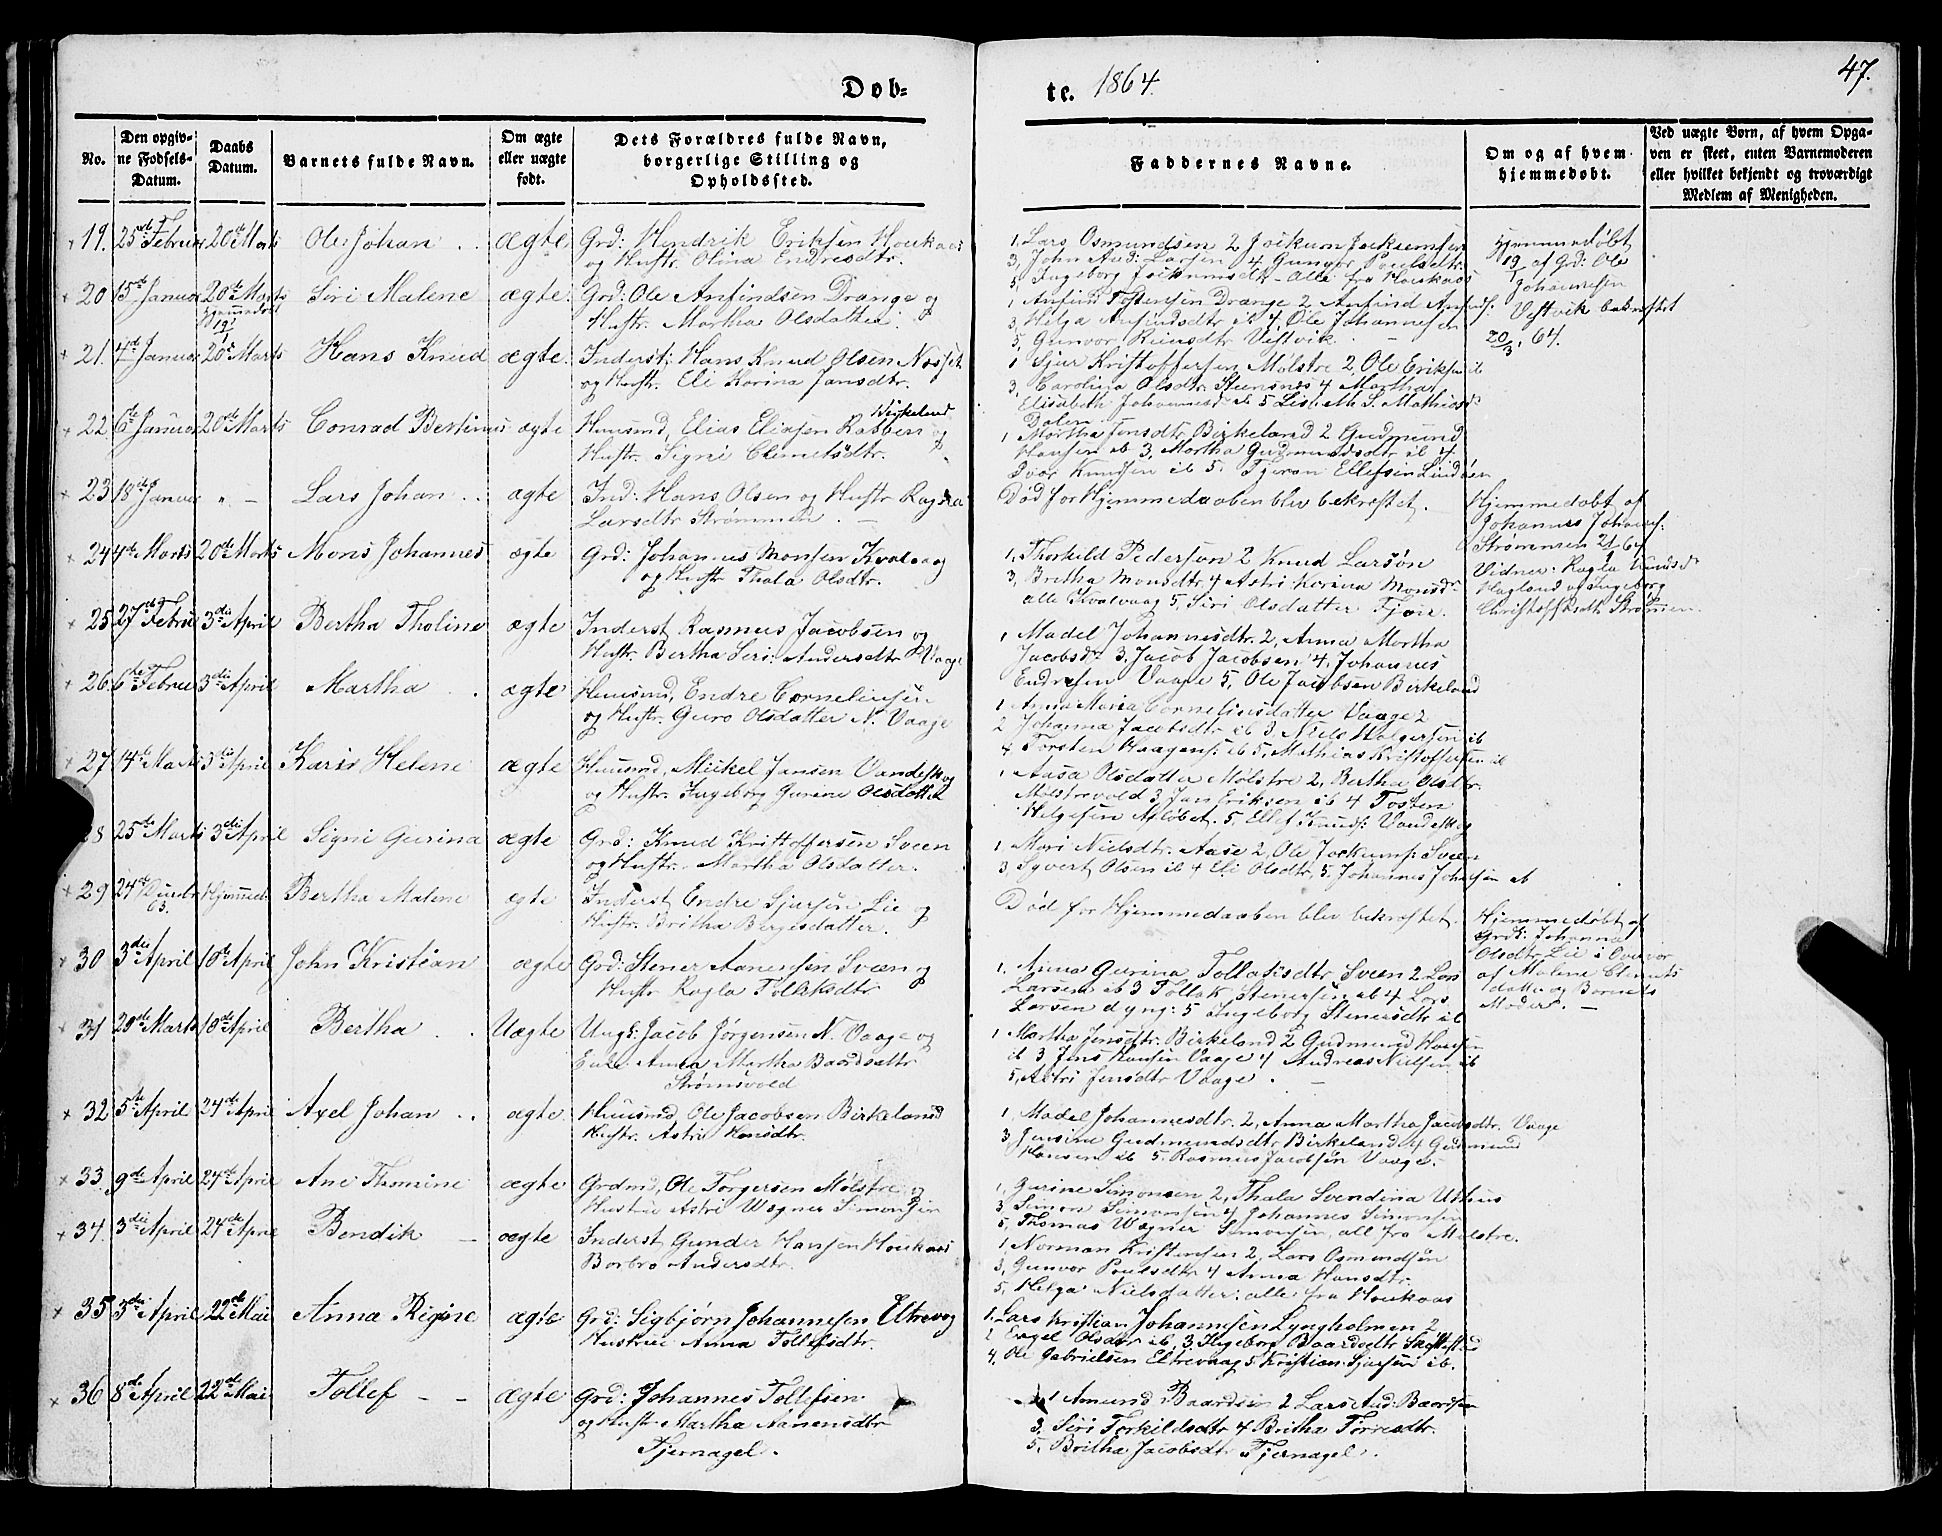 Døb-
te. 1864.
47.
No.
Den opgiv-
ne Fødsels-
Datum.
Daabs
Datum.
Barnets fulde Navn.
Om ægte
eller uægte
født.
Dets Forældres fulde Navn,
borgerlige Stilling og
Opholdssted.
Faddernes Navne.
Om og af hvem
hjemmedøbt.
Ved uægte Børn, af hvem Opga-
ven er skeet, enten Barnemoderen
eller hvilket bekjendt og troværdigt
Medlem af Menigheden.
19. 25de Februar 20de Marts Ole Johan ægte Grd: Hendrik Eriksen Houkaas
og Hustr. Olina Endresdtr.
1, Lars Osmundsen 2 Joikum Joikumsen
3, John And: Larsen 4 Gunvor Poulsdtr.
5, Ingeborg Joikumsdtr. Alle fra Houkaas
Hjemmedøbt
af Grd: Ole
Johannesen
Vestvik bekræftet
20/3, 64.
20 15de Januar 20de Marts Siri Malene ægte Grd: Ole Anfindsen Drange og
Hustr. Martha Olsdatter.
1 Anfind Tostensen Drange 2 Anfind Anfinds.
3, Helga Anfindsdtr ib 4, Ole Johannesen
5, Gunvor Vestvik.
21. 4de Januar 20de Marts Hans Knud ægte Inderst: Hans Knud Olsen
og Hustr. Eli Korina Jansdtr.
1 Sjur Kristoffersen Mølstre 2, Ole Eriksen ib
3, Carolina Olsdtr. Steensnes 4 Martha
Elisabeth Johannesd ib 5 M. S. Mathiasd
Dalen
22 6te Januar 20de Marts Conrad Bertinus ægte Huusmd, Elias Eliasen Rabben Birkeland og
Hustr. Signi Clemetsdtr.
1 Martha Jensdtr. Birkeland 2 Gudmund
Hansen ib 3, Martha Gudmundsdtr ib 4
Ivar Knudsen ib 5. Ellefsen Lindøen
23 18de Januar „ — Lars Johan ægte Ind: Hans Olsen og Hustr Ragla
Larsdtr Strømmen.
Død før Hjemmedaaben blev bekræftet.
Hjemmedøbt af
Johannes Johannes.
Strømmen 21/1 64
Vidner: Ragla Knudsd.
Hagland og Ingeborg
Christoffersdtr. Strømmen.
24 4de Marts 20de Marts Mons Johannes ægte Grd: Johannes Monsen Kvalvaag
og Hustr Thala Olsdtr.
1, Thorkild Pedersen 2 Knud Larsøn
3, Bretha Monsdtr. 4 Astri Korina Monsdr
alle Kvalvaag 5, Siri Olsdatter Fjøn.
25 27de Febru 3die April Bertha Tholine ægte Inderst Rasmus Jacobsen og
Hustr. Bertha Seri: Andersdtr Vaage
1 Madel Johannesdtr. 2, Anna Martha
Jacobsdr 3. Jacob Jacobsen 4, Johannes
Endresen Vaage 5, Ole Jacobsen Birkeland
26 6te Febru 3die April Martha ægte Huusmd, Endre Corneliusen
og Hustr. Guro Olsdatter N. Vaage
1 Anna Maria Corneliusdatter Vaage 2
2 Johanna Jacobsdtr ib 3, Niels Holgersen ib
4 Torsten Haagens. ib 5, Mathias Kristoffersen ib
27 14de Marts 3die April Kari Helene ægte Huusmd, Mickel Jansen Vandeskog
og Hustr. Ingeborg Gurine Olsdatter
1, Aasa Olsdatter Mølstre 2, Bertha Olsdtr.
Mølstrevold 3, Jan Eriksen ib 4 Tosten
Helgesen 5, Ellef Knuds. Vandeskog
28 25de Marts 3die April Signi Gurina ægte Grd: Knud Kristoffersen Sveen
og Hustr. Martha Olsdatter.
1. Mari Nielsdtr. Aase 2, Ole Jockums. Sveen
3, Syvert Olsen ib 4 Eli Olsdtr, 5, Johannes Johnsen ib
29 24de Decbr 63. Hjemmed. Bertha Malene ægte Inderst Endre Sjursen Lie og
Hustr. Britha Bergesdatter.
Død før Hjemmedaaben blev bekræftet.
Hjemmedøbt af
Grdk: Johanna
Olsdtr. Lie i Overvær
af Malene Clemets
datter og Barnets
Moder. —
30 3die April 10de April John Kristian ægte Grd: Stener Aanensen Sveen og
Hustr Ragla Tollaksdtr
1. Anna Gurina Tollaksdtr Sveen 2 Lars
Larsen ib 3 Tollak Stenersen ib 4 Lars
Larsen d yng: 5 Ingeborg Stenersdtr ib
31 20de Marts 10de April Bertha Uægte Ungk: Jacob Jørgensen N. Vaage og
Enke Anna Martha Baardsdtr
Strømsvold
1 Martha Jensdtr. Birkeland 2 Gudmund Hansen
ib 3 Jens Hansen Vaage 4 Andreas Nielsen ib
5, Astri Jensdtr Vaage.
32 5te April 24de April Axel Johan ægte Huusmd, Ole Jacobsen Birkeland
Hustr. Astri Hansdtr.
1, Madel Johannesdtr. 2, Anna Martha Jacobsdtr. Vaage
3, Jensine Gudmundsdtr Birkeland 4 Gudmund
Hansen ib 5. Rasmus Jacobsen Vaage.
33 9de April 24de April Ane Thomine ægte Grdmd, Ole Torgersen Mølstre og
Hustrue Astri Wegner Simonsen
1, Gurine Simonsen 2, Thala Svendina Uthus
3 Simon Simonsen 4 Johannes Simonsen
5, Thomas Wegner Simonsen, all fra Mølstre.
34. 3die April 24de April Bendik ægte Inderst Gunder Hansen Houkaas
Borbro Andersdtr.
1, Norman Kristensen 2, Lars Osmundsen
3, Gunvor Poulsdtr 4 Anna Hansdtr.
5, Helga Nielsdatter: alle fra Houkaas
35 3die April 22de Mai Anna Rigine ægte Grd: Sigbjørn Johannesen Eltrevog
Hustrue Anna Tollefsdtr.
1. Lars Kristian Johannesen Lyngholmen 2
2 Engel Olsdtr ib. 3, Ingeborg Baardsdtr
4, Ole Gabrielsen Eltrevaag 5 Kristian Sjursen ib.
36 8de April 22de Mai Tollef — — ægte Grd: Johannes Tollefsen
og Hustr. Martha Aanensdtr
Tjernagel.
1 Amund Baardsen 2 Lars And: Baardsen
3, Siri Torkildsdtr 4 Britha Torresdtr.
5, Britha Jacobsdtr Tjernagel.